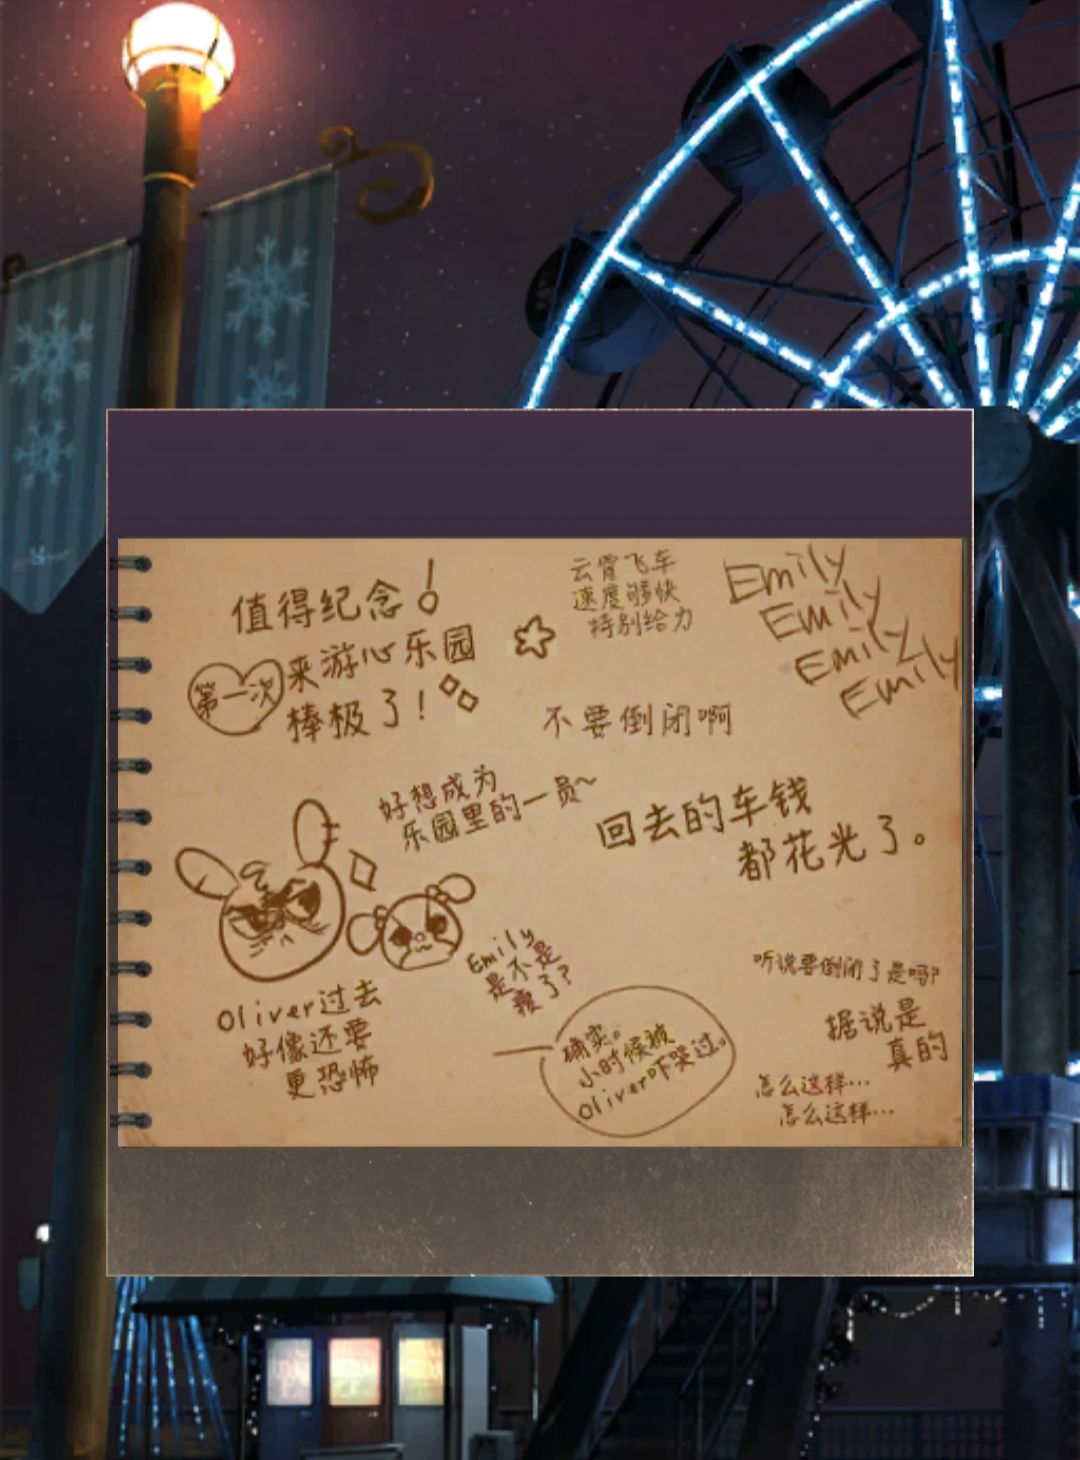 值得纪念！
第一次
来游心乐园
棒极了！
云霄飞车
速度够快
特别给力
Emily
Emily
Emily
Emily
不要倒闭啊
好想成为
乐园里的一员~
回去的车钱
都花光了。
Oliver过去
好像还要
更恐怖
Emily
是不是
瘦了?
确实。
小时候被
Oliver吓哭过。
听说要倒闭了是吗?
据说是
真的
怎么这样…
怎么这样…